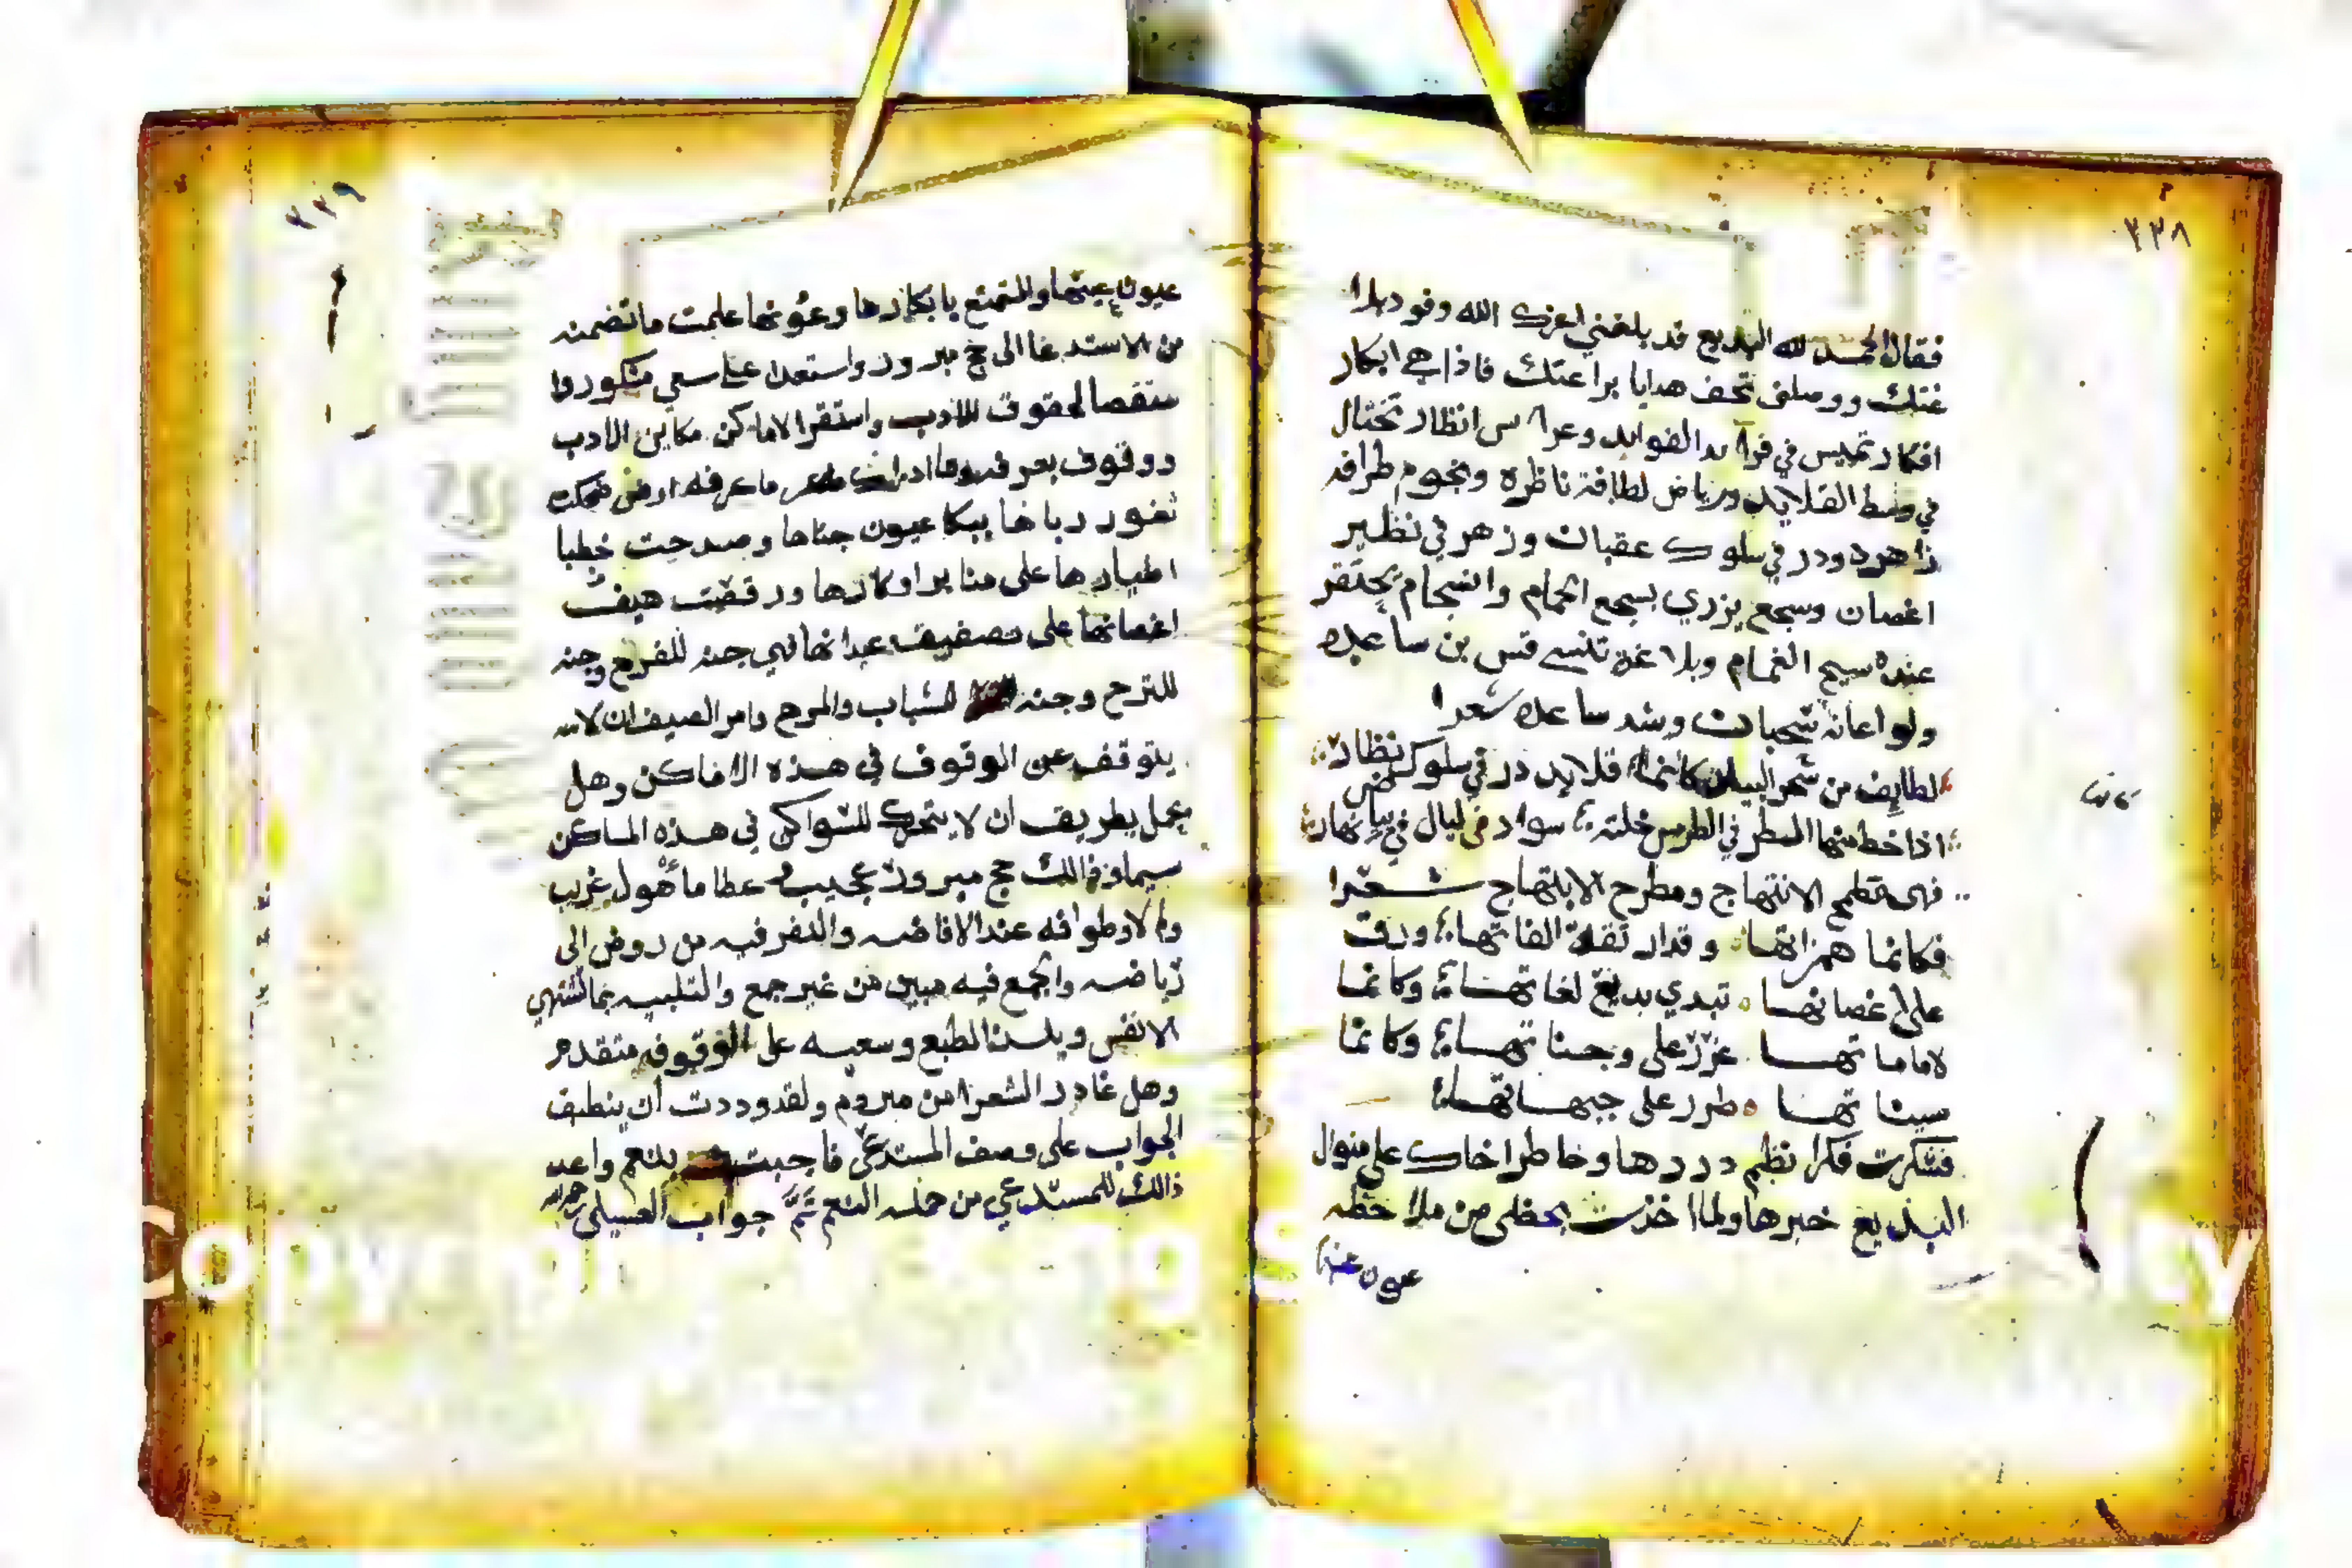 ٣٣٨
فقال الحمد لله البديع قد بلغني اعزك الله وفود
ووصلني تحف هدايا براعتك فاذا هي ابكار
افكار تميس في الفوايد وعرا س انظار تختال
في وسط القلايد ورياض لطافة ناظره ونجوم طرافه
زاهره ودر في سلوك عقيان وزهر في نظير
اغصان وسجع يزري بسجع الحمام وانسجام يحتقر
عنده سيح الغمام وبلاغة تنسي قس بن ساعده
ولو اعانه سحبان وشد ساعده شعرا
لطايف من سحر البيان كانما قلايد در في سلوك نظار
اذا خط منها السطر في الطرس خلته سواد ليال في بياض نهار
فهي مطمح الابتهاج ومطرح الابتهاج شعرا
فكانما همزاتها وقد ار الفاتها ورق
على اغصانها تبدي بديع لغاتها وكانما
لاماتها غرر على وجناتها وكانما
سيناتها طرر على جبهاتها
فشكرت فكرا نظم دررها وخاطرا حاك على منوال
البديع حبرها ولما اخذت بحظي من ملاحظه
عيون
٣٣٩
عيون عينها والتمتع بابكارها وعونها علمت ما تضمنه
من الاستدعا الى حج مبرور واستعدا على سعي مشكور وا
ستقصا لحقوق الادب واستقرا لاماكن مكاين الادب
ووقوف بعرفه وما ادراك ما عرفه ارض ضحكت
ثغور رباها ببكا عيون جناها وصدحت خطبا
اطيارها على منابر اوكارها ورقصت هيف
اغصانها على تصفيق عيدانها فهي جنه للفرح وجنه
للترح وجنه للشباب والمرح وامر الضيف ان لا
يتوقف عن الوقوف في هذه الاماكن وهل
يجمل بطريف ان لا يتحرك للسواكن في هذه المساكن
سيما وذالك حج مبرور عجيب وعطا ماهول غريب
ولم لا وطوافه عند الافاضه والنفر فيه من روض الى
رياضه والجمع فيه مبين من غير جمع والتلبيه بما تشتهي
الانفس ويلذ الطبع وسعيه على الوقوف متقدم
وهل غادر الشعرا من متردم ولقد وددت ان ينطبق
الجواب على وصف المستدعي فاجبت بنعم واعد
ذالك للمستدعي من جمله النعم تم جواب العسيلي رحمه الله